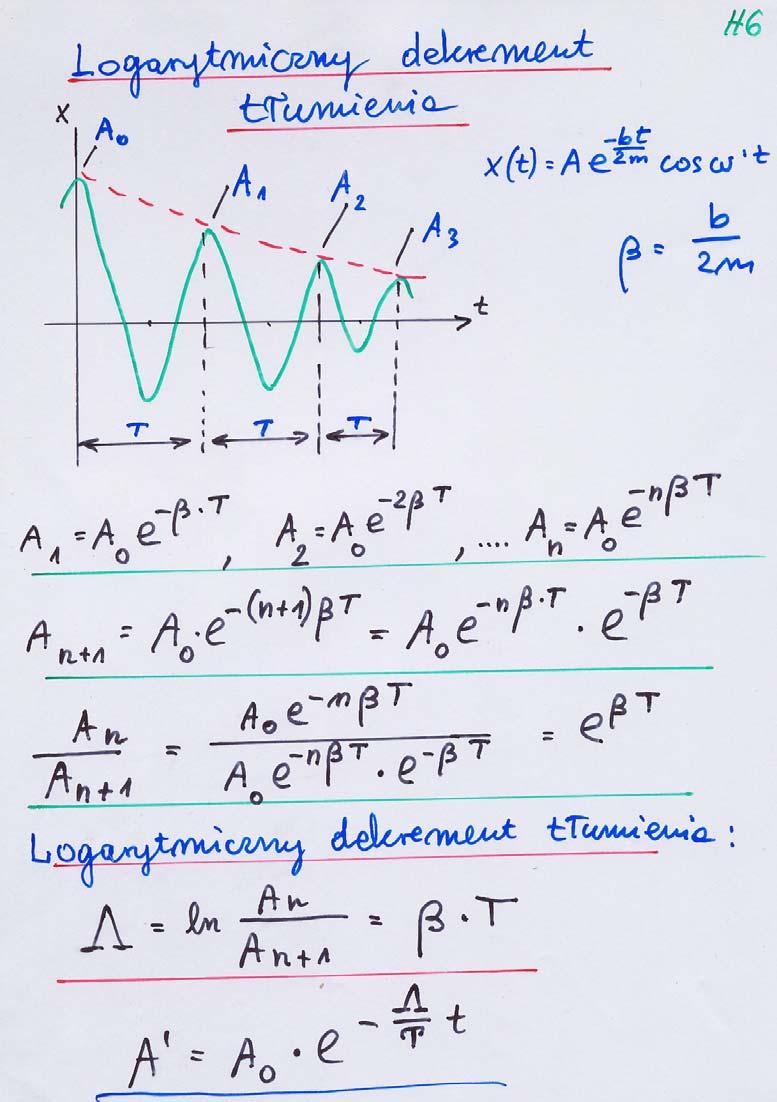 H6
Logarytmiczny dekrement
tłumienia
x
A₀
A₁
A₂
A₃
t
x(t) = A e^(-bt/2m) cos ω't
β = b/2m
T T T
A₁ = A₀ e^(-β·T), A₂ = A₀ e^(-2βT), .... Aₙ = A₀ e^(-nβT)
Aₙ₊₁ = A₀·e^(-(n+1)βT) = A₀ e^(-nβ·T) · e^(-βT)
Aₙ/Aₙ₊₁ = A₀ e^(-nβT) / A₀ e^(-nβT) · e^(-βT) = e^(βT)
Logarytmiczny dekrement tłumienia:
Λ = ln Aₙ/Aₙ₊₁ = β·T
A' = A₀ · e^(-Λ/T t)